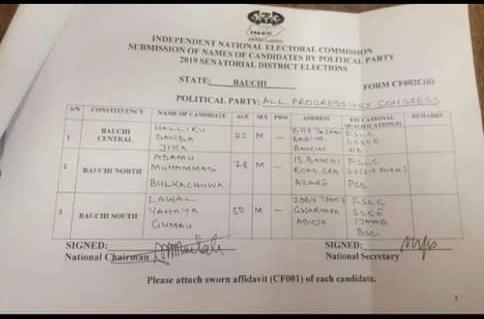 inec
INDEPENDENT NATIONAL ELECTORAL COMMISSION
SUBMISSION OF NAMES OF CANDIDATES BY POLITICAL PARTY
2019 SENATORIAL DISTRICT ELECTIONS
STATE: BAUCHI
FORM CF002C(ii)
POLITICAL PARTY: ALL PROGRESSIVES CONGRESS
S/N CONSTITUENCY NAME OF CANDIDATE AGE SEX PWD ADDRESS EDUCATIONAL QUALIFICATION(S) REMARKS
1 BAUCHI CENTRAL HALLIRU DAUDA JIKA 42 M - BAUCHI FSLC SSCE
2 BAUCHI NORTH ADAMU MUHAMMAD BULKACHUWA 78 M - BAUCHI ROAD GRA AZARE FSLC
3 BAUCHI SOUTH LAWAL YAHAYA GUMAU 50 M - GWARIMPA ABUJA FSLC SSCE BSc
SIGNED: SIGNED:
National Chairman National Secretary
Please attach sworn affidavit (CF001) of each candidate.
1